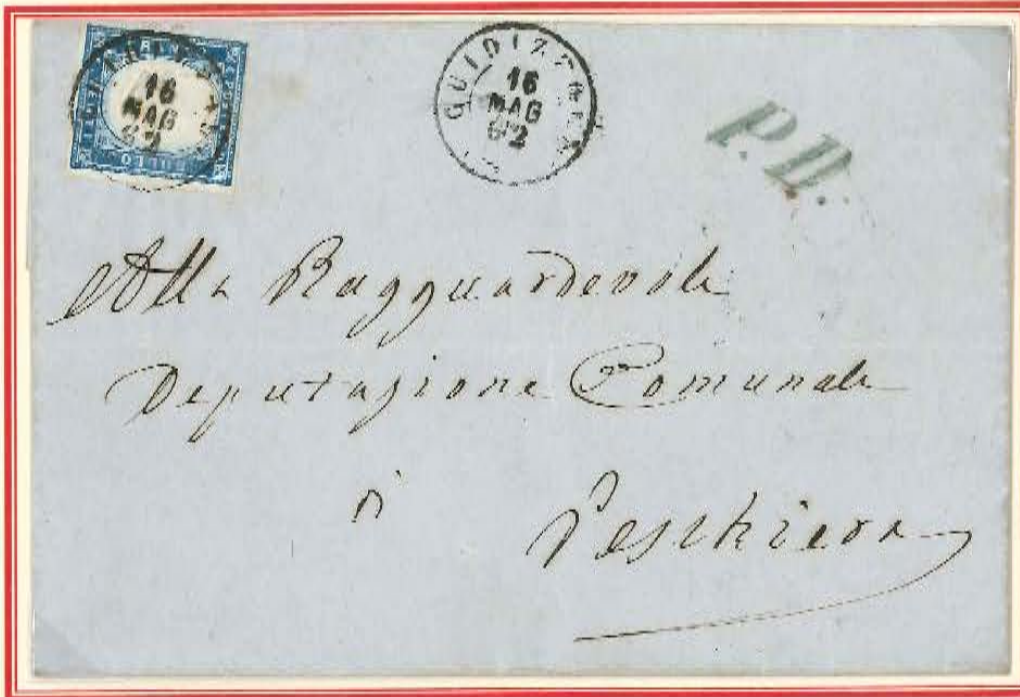 GUIDIZZOLO
16
MAG
62
16
MAG
62
P.D.
Alla Ragguardevole
Deputazione Comunale
di Peschiera